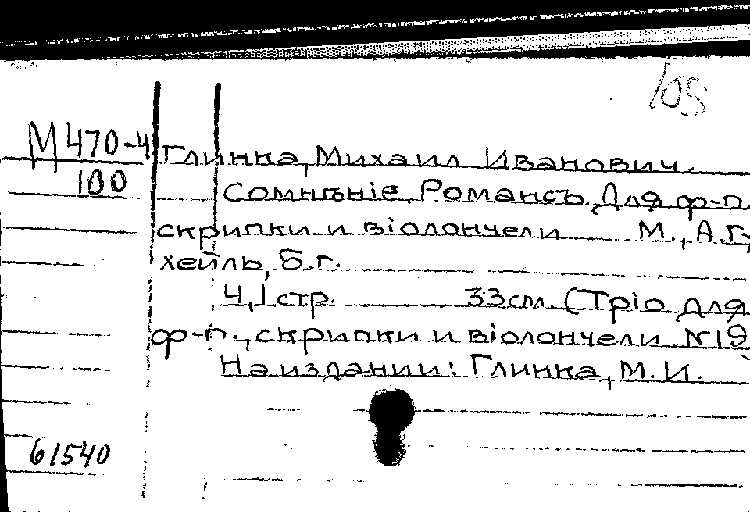 105
М470-4 Глинка, Михаил Иванович.
100
Сомнѣніе. Романсъ. Для ф-п.
скрипки и віолончели М., А.Г.
хейль, б.г.
4,1 стр. 33см. (Тріо для
ф-п., скрипки и віолончели №19
На издании: Глинка, М.И.
61540